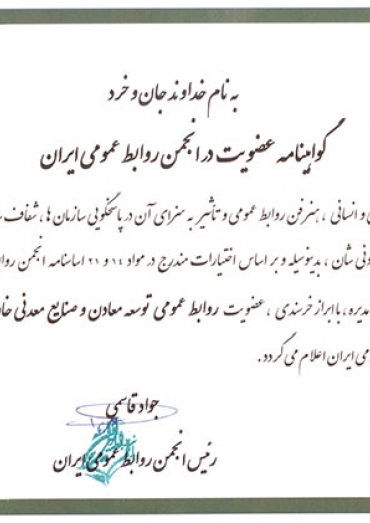 به نام خداوند جان و خرد
گواهینامه عضویت در انجمن روابط عمومی ایران
و انسانی ، هنر فن روابط عمومی و تأثیر به سزای آن در پاسخگویی سازمان ها ، شفاف
شان ، بدینوسیله و بر اساس اختیارات مندرج در مواد ۱۴ و ۲۱ اساسنامه انجمن روابط
مدیره ، با ابراز خرسندی ، عضویت روابط عمومی توسعه معادن و صنایع معدنی
ایران اعلام می گردد .
جواد قاسمی
رئیس انجمن روابط عمومی ایران